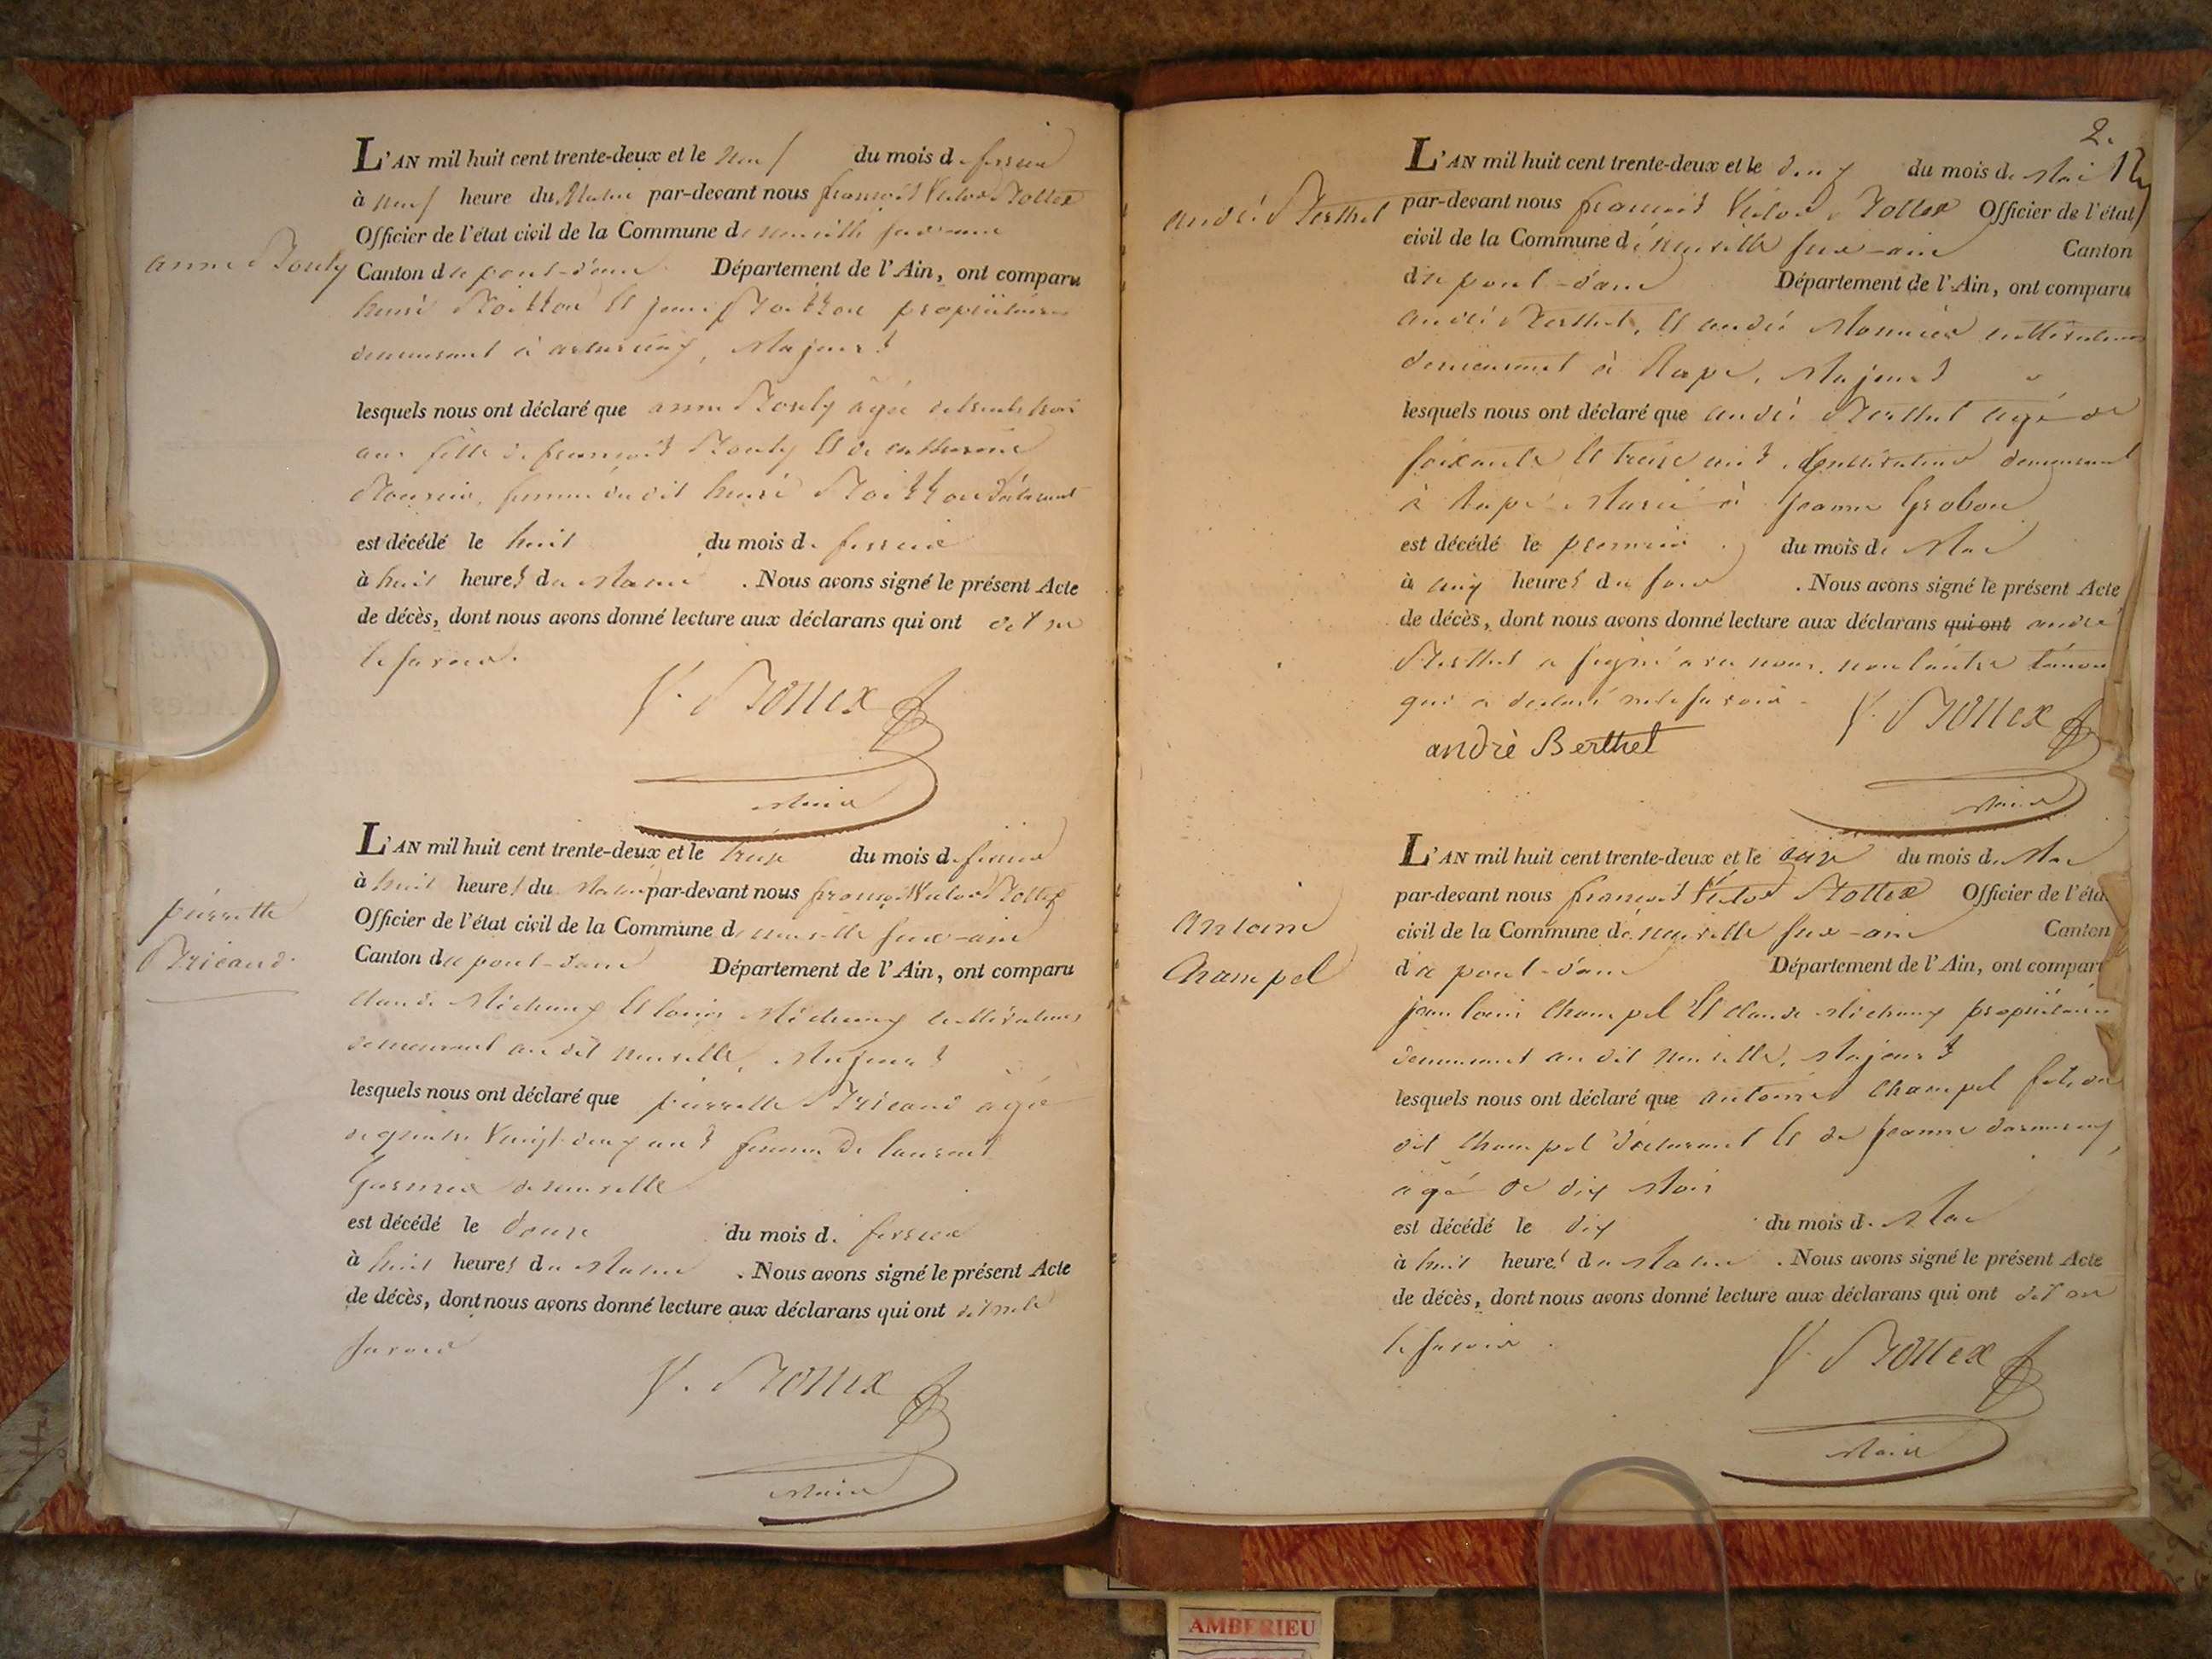 L'AN mil huit cent trente-deux et le neuf du mois de fevrier
à neuf heure du Matin par-devant nous francois Victor Bottex
Officier de l'état civil de la Commune de neuville sur-ain
anne Bouly
Canton du pont-d'ain Département de l'Ain, ont comparu
henri et propriétaires
demeurant à , Majeurs
lesquels nous ont déclaré que anne Bouly agée de trente trois
ans fille de francois Bouly et de catherine
femme du dit henri déclarant
est décédé le huit du mois de fevrier
à huit heures du Matin . Nous avons signé le présent Acte
de décès, dont nous avons donné lecture aux déclarans qui ont dit ne
le savoir.
V. Bottex
Maire
L'AN mil huit cent trente-deux et le treize du mois de fevrier
à huit heures du Matin par-devant nous francois Victor Bottex
Officier de l'état civil de la Commune de neuville sur-ain
pierrette
Bricaud
Canton du pont-d'ain Département de l'Ain, ont comparu
claude Michaux et louis Michaux cultivateurs
demeurant au dit neuville, Majeurs
lesquels nous ont déclaré que pierrette Bricaud agée
de quatre Vingt deux ans femme de laurent
de neuville
est décédé le douze du mois de fevrier
à huit heures du Matin . Nous avons signé le présent Acte
de décès, dont nous avons donné lecture aux déclarans qui ont dit ne le
savoir
V. Bottex
Maire
2.
L'AN mil huit cent trente-deux et le deux du mois de Mai
andré Berthet
par-devant nous francois Victor Bottex Officier de l'état
civil de la Commune de neuville sur-ain Canton
du pont-d'ain Département de l'Ain, ont comparu
andré Berthet, et andré Monnier cultivateurs
demeurant à Rape, Majeurs
lesquels nous ont déclaré que andré Berthet agé de
soixante et treize ans, cultivateur demeurant
à Rape Marié à jeanne Grobon
est décédé le premier du mois de Mai
à cinq heures du soir . Nous avons signé le présent Acte
de décès, dont nous avons donné lecture aux déclarans qui ont andré
Berthet a signé avec nous, non l'autre témoin
qui a déclaré ne le savoir
V. Bottex
andrè Berthet
Maire
L'AN mil huit cent trente-deux et le onze du mois de Mai
par-devant nous francois Victor Bottex Officier de l'éta
Antoine
Champel
civil de la Commune de neuville sur-ain Canton
du pont-d'ain Département de l'Ain, ont compar
jean louis Champel et claude Michaux propriétaires
demeurant au dit neuville, Majeurs
lesquels nous ont déclaré que antoine Champel fils du
dit Champel déclarant et de jeanne
agé de dix Mois
est décédé le dix du mois de Mai
à huit heures du Matin . Nous avons signé le présent Acte
de décès, dont nous avons donné lecture aux déclarans qui ont dit ne
le savoir .
V. Bottex
Maire
AMBERIEU